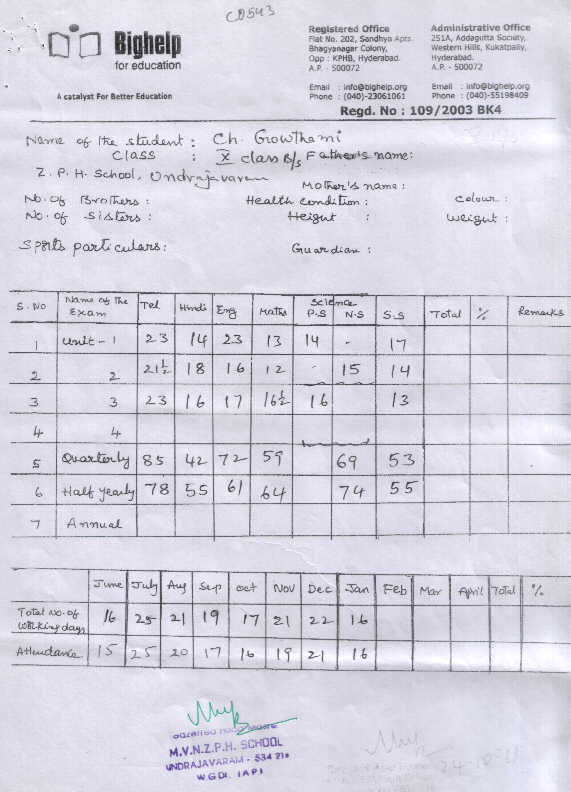 CD543
Bighelp
for education
A catalyst For Better Education
Registered Office
Flat No. 202, Sandhya Apts.
Bhagyanagar Colony,
Opp : KPHB, Hyderabad.
A.P. - 500072
Email : info@bighelp.org
Phone : (040)-23061061
Administrative Office
251A, Addagutta Society,
Western Hills, Kukatpally,
Hyderabad.
A.P. - 500072
Email : info@bighelp.org
Phone : (040)-55198409
Regd. No : 109/2003 BK4
Name of the student : Ch. Growthami
Class : X class B/s Father's name:
Z. P. H. School, Undrajavaram
Mother's name :
No. of Brothers : Health condition : Colour :
No. of Sisters : Height : Weight :
Sports particulars: Guardian :
S. No Name of the Exam Tel Hindi Eng Maths Science P.S N.S S.S Total % Remarks
1 Unit - 1 23 14 23 13 14 - 17
2 2 21½ 18 16 12 - 15 14
3 3 23 16 17 16½ 16 13
4 4
5 Quarterly 85 42 72 59 69 53
6 Half yearly 78 55 61 64 74 55
7 Annual
June July Aug Sep Oct Nov Dec Jan Feb Mar April Total %
Total No. of working days 16 25 21 19 17 21 22 16
Attendance 15 25 20 17 16 19 21 16
M.V.N.Z.P.H. SCHOOL
UNDRAJAVARAM - 534 216
W.GDI. (A P)